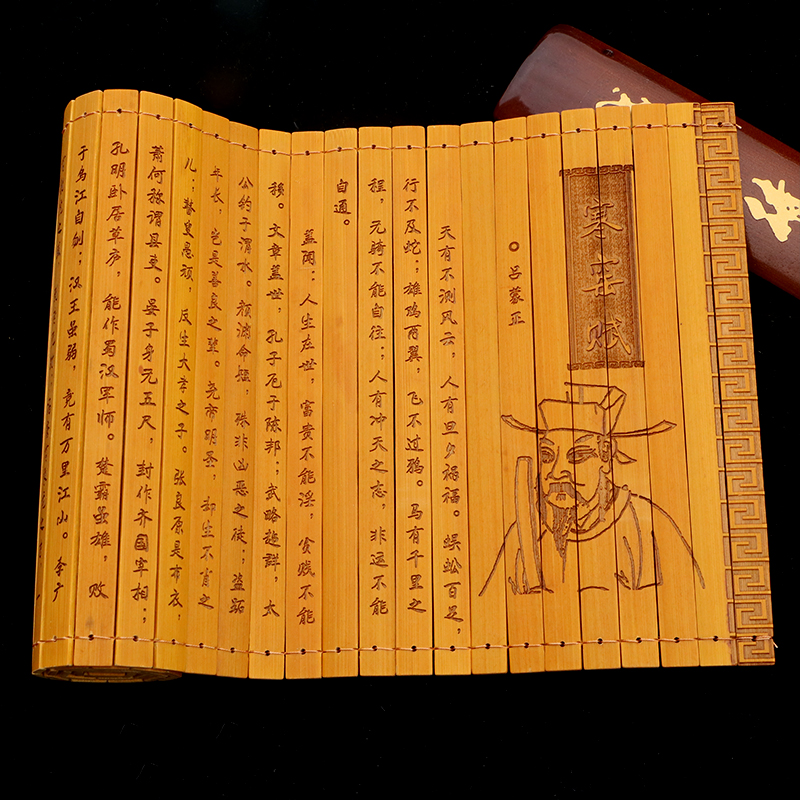 寒窑赋
○ 吕蒙正
天有不测风云，人有旦夕祸福。蜈蚣百足，
行不及蛇；雄鸡两翼，飞不过鸦。马有千里之
程，无骑不能自往；人有冲天之志，非运不能
自通。
盖闻：人生在世，富贵不能淫，贫贱不能
移。文章盖世，孔子厄于陈邦；武略超群，太
公钓于渭水。颜渊命短，殊非凶恶之徒；盗跖
年长，岂是善良之辈。尧帝明圣，却生不肖之
儿；瞽叟愚顽，反生大孝之子。张良原是布衣，
萧何称谓县吏。晏子身无五尺，封作齐国宰相；
孔明卧居草庐，能作蜀汉军师。楚霸虽雄，败
于乌江自刎；汉王虽弱，竟有万里江山。李广